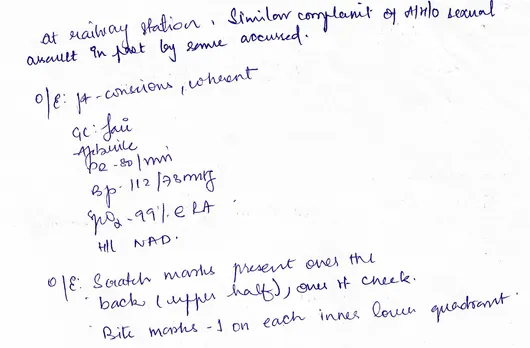 at railway station. Similar complaint of A/H/O sexual
assault in past by same accused.
O/E: pt-conscious, coherent
GC: fair
Afebrile
PR -80/min
Bp- 112/78mmHg
SpO2 -99% @ RA
H/L NAD.
O/E: Scratch marks present over the
back (upper half), over rt cheek.
Bite marks -1 on each inner lower quadrant.